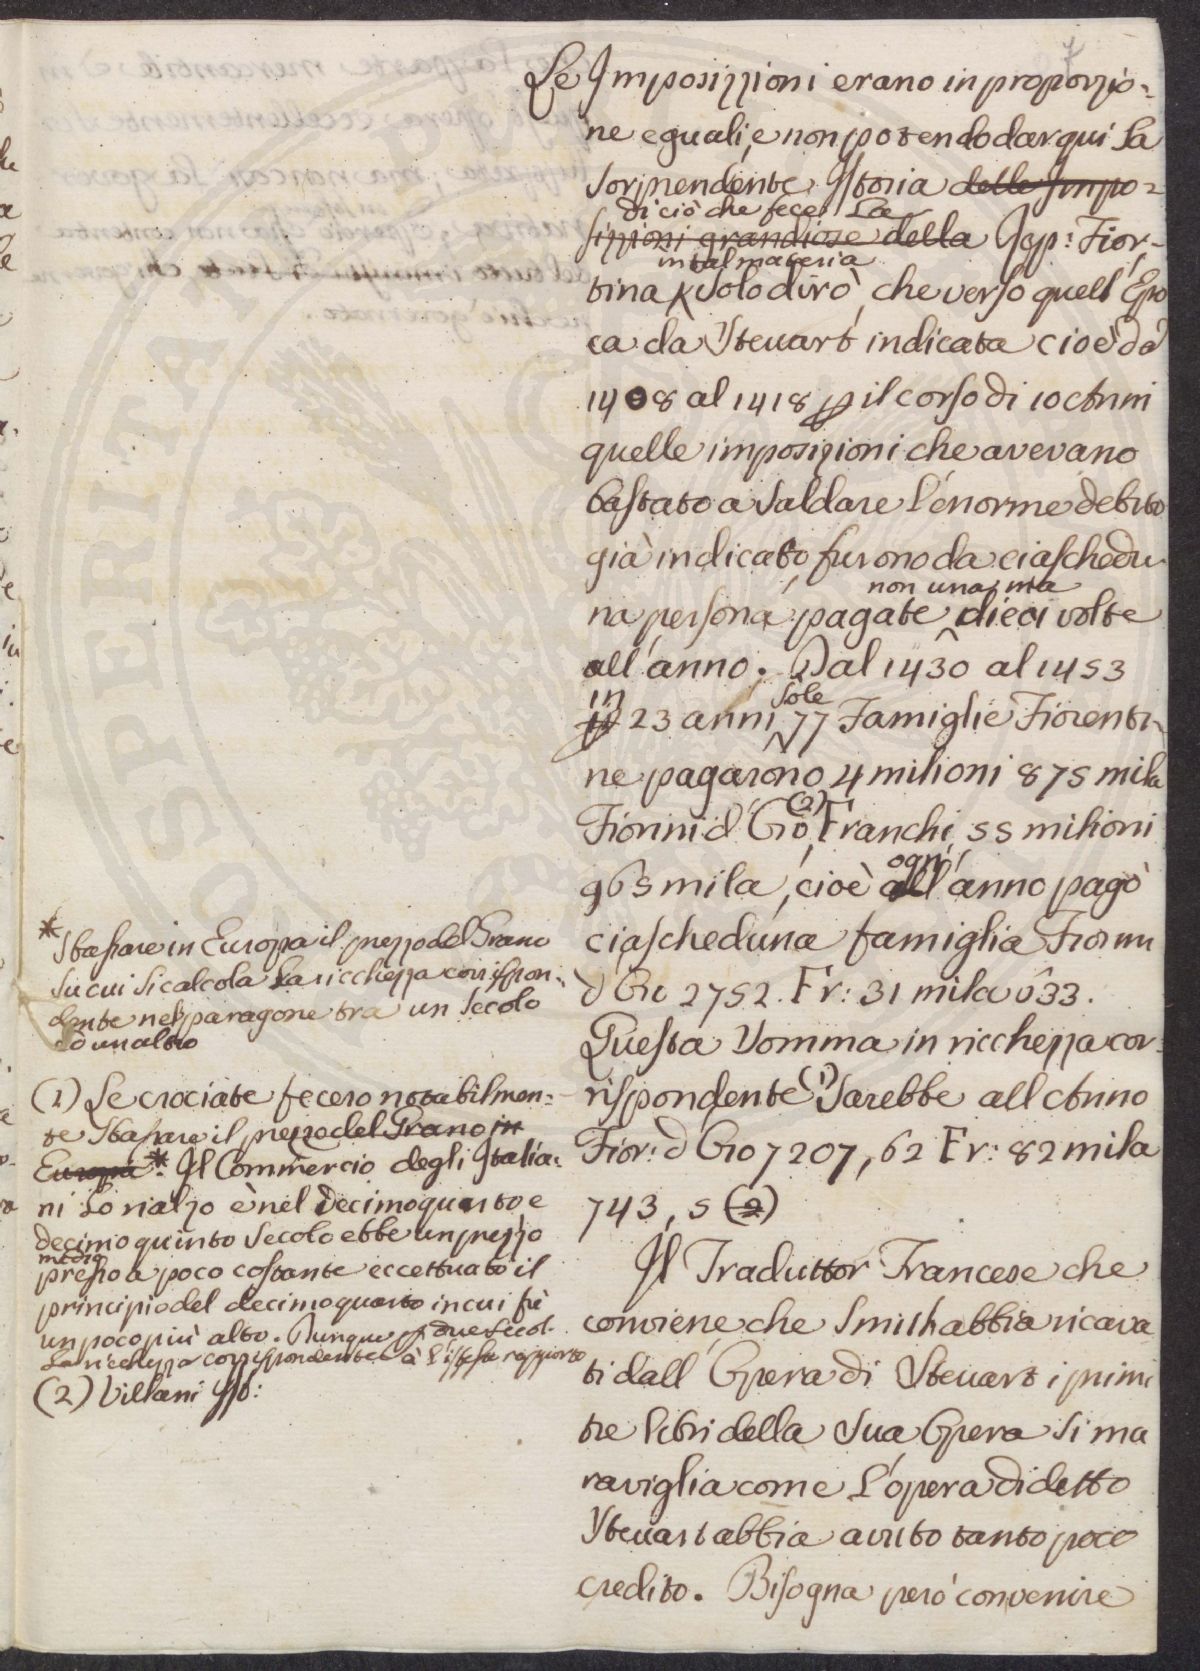 7
Le Imposizzioni erano in proporzio=
ne eguali, e non potendo dar qui la
sorprendente Istoria delle Impo=
di ciò che fece La
sizzioni grandiose della Rep: Fior-
in tal materia
tina solo dirò, che verso quell'Epo
ca da Steuart indicata cioè dal
1408 al 1418 per il corso di 10 Anni
quelle imposizioni che avevano
bastato a saldare l'enorme debito
già indicato, furono da ciaschedu-
non una, ma
na persona, pagate dieci volte
all'anno. Dal 1430 al 1453
in sole
per 23 anni 77 Famiglie Fiorenti-
ne pagarono 4 milioni 875 mila
Fiorini d'Oro, (2) Franchi, 55 milioni
ogni
965 mila, cioè all'anno pagò
ciascheduna famiglia Fiorini
d'Oro 2752. Fr: 31 mila 033.
Questa Somma in ricchezza cor=
rispondente (1) sarebbe all'Anno
Fior: d'Oro 7207,62 Fr: 82 mila
743,5 (2)
Il Traduttor Francese che
conviene che Smith abbia ricava
ti dall'Opera di Steuart i primi
tre libri della sua Opera si ma
raviglia come l'opera di detto
Steuart abbia avuto tanto poco
credito. Bisogna però convenire
* Sbassare in Europa il prezzo del Grano
su cui si calcola la ricchezza corrispon=
dente nel paragone tra un Secolo
ed un altro
(1) Le crociate fecero notabilmen=
te Sbassare il prezzo del Grano in
Europa * . Il Commercio degli Italia=
ni lo rialzò è nel Decimoquarto, e
decimo quinto Secolo ebbe un prezzo
medio
presso a poco costante eccettuato il
principio del decimoquarto in cui fù
un poco più alto. Dunque per due Secoli
La ricchezza corrispondente à l'istesso rapporto
(2) Villani Ist: